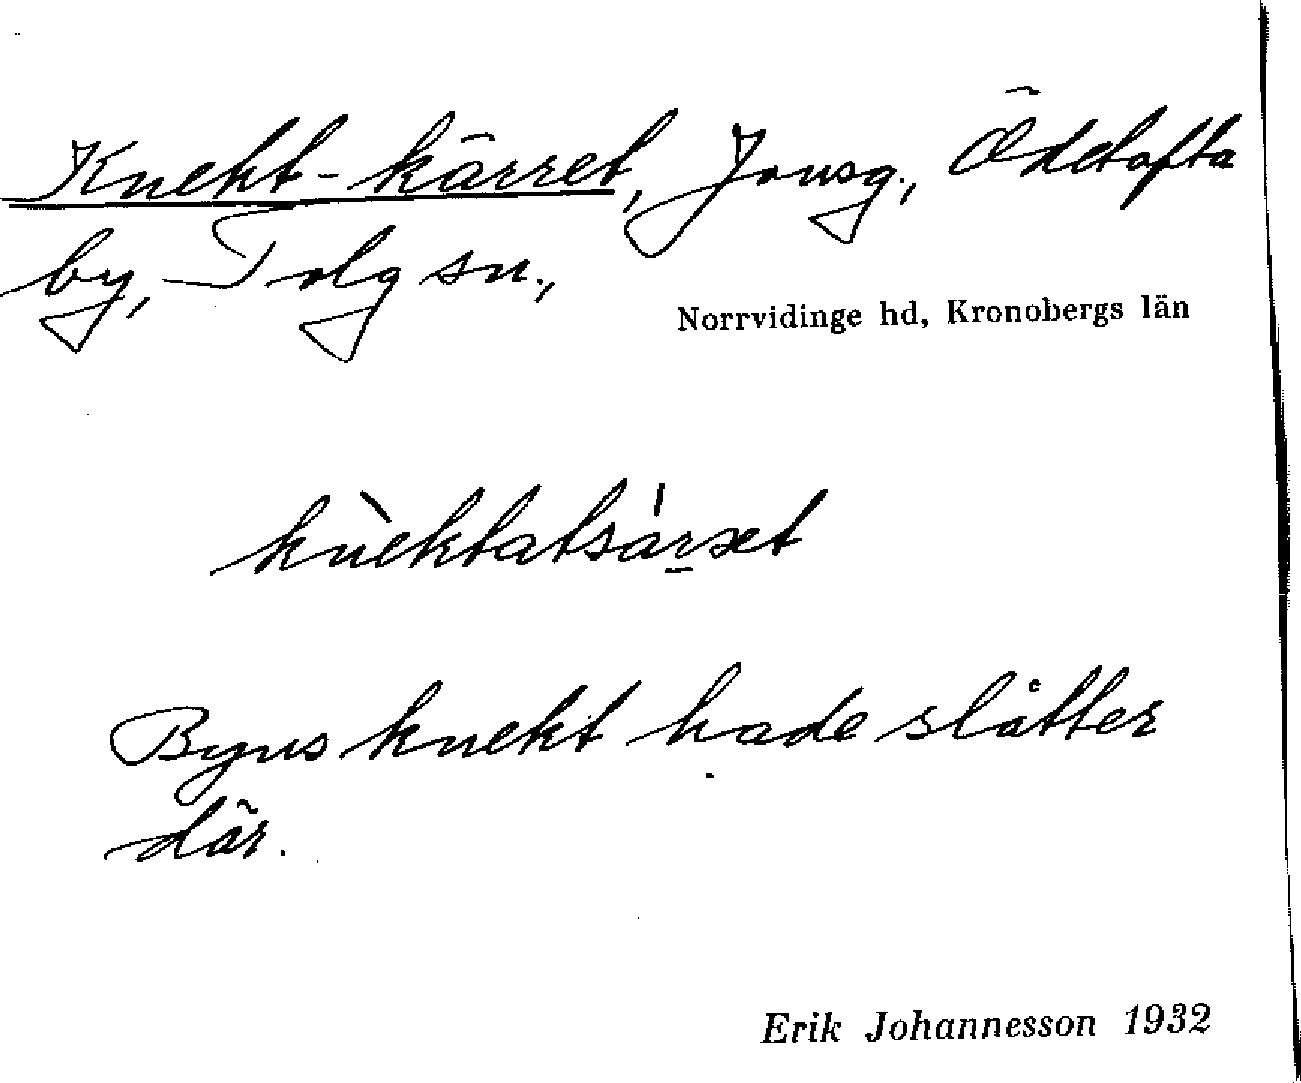 Knekt-kärret, Jonsg., Ödetofta
by, Tolg sn.,
Norrvidinge hd, Kronobergs län
knèktatsárxet
Byns knekt hade slåtter
där.
Erik Johannesson 1932